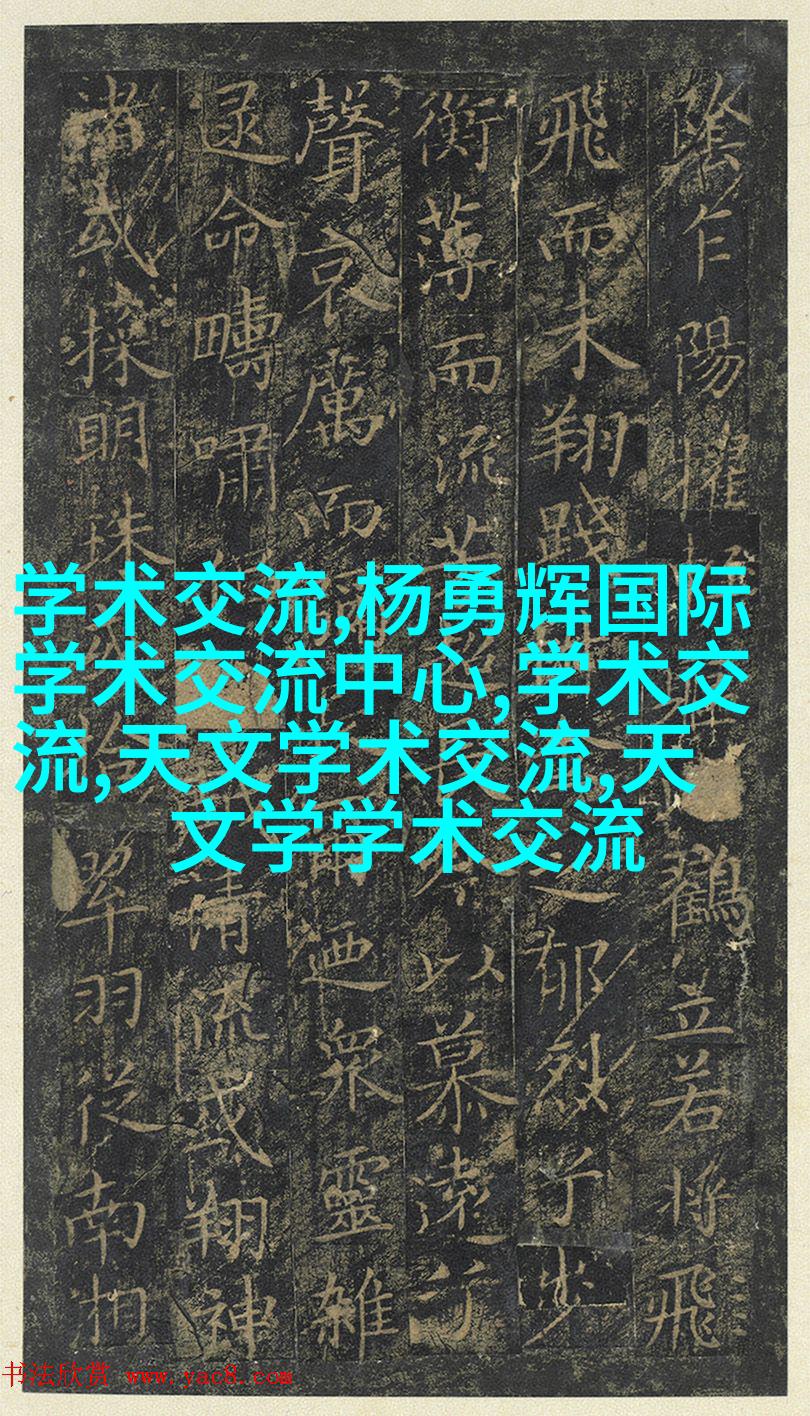 陰乍陽擢輕鶴立若將飛
飛而未翔踐之郁烈步
衡薄而流芳以慕遠兮
聲哀厲而爾迺衆靈雜
逯命疇嘯清流或翔神
渚或採明珠翠羽從南湘
学术交流,杨勇辉国际
学术交流中心,学术交
流,天文学术交流,天
文学学术交流
书法欣赏 www.yac8.com